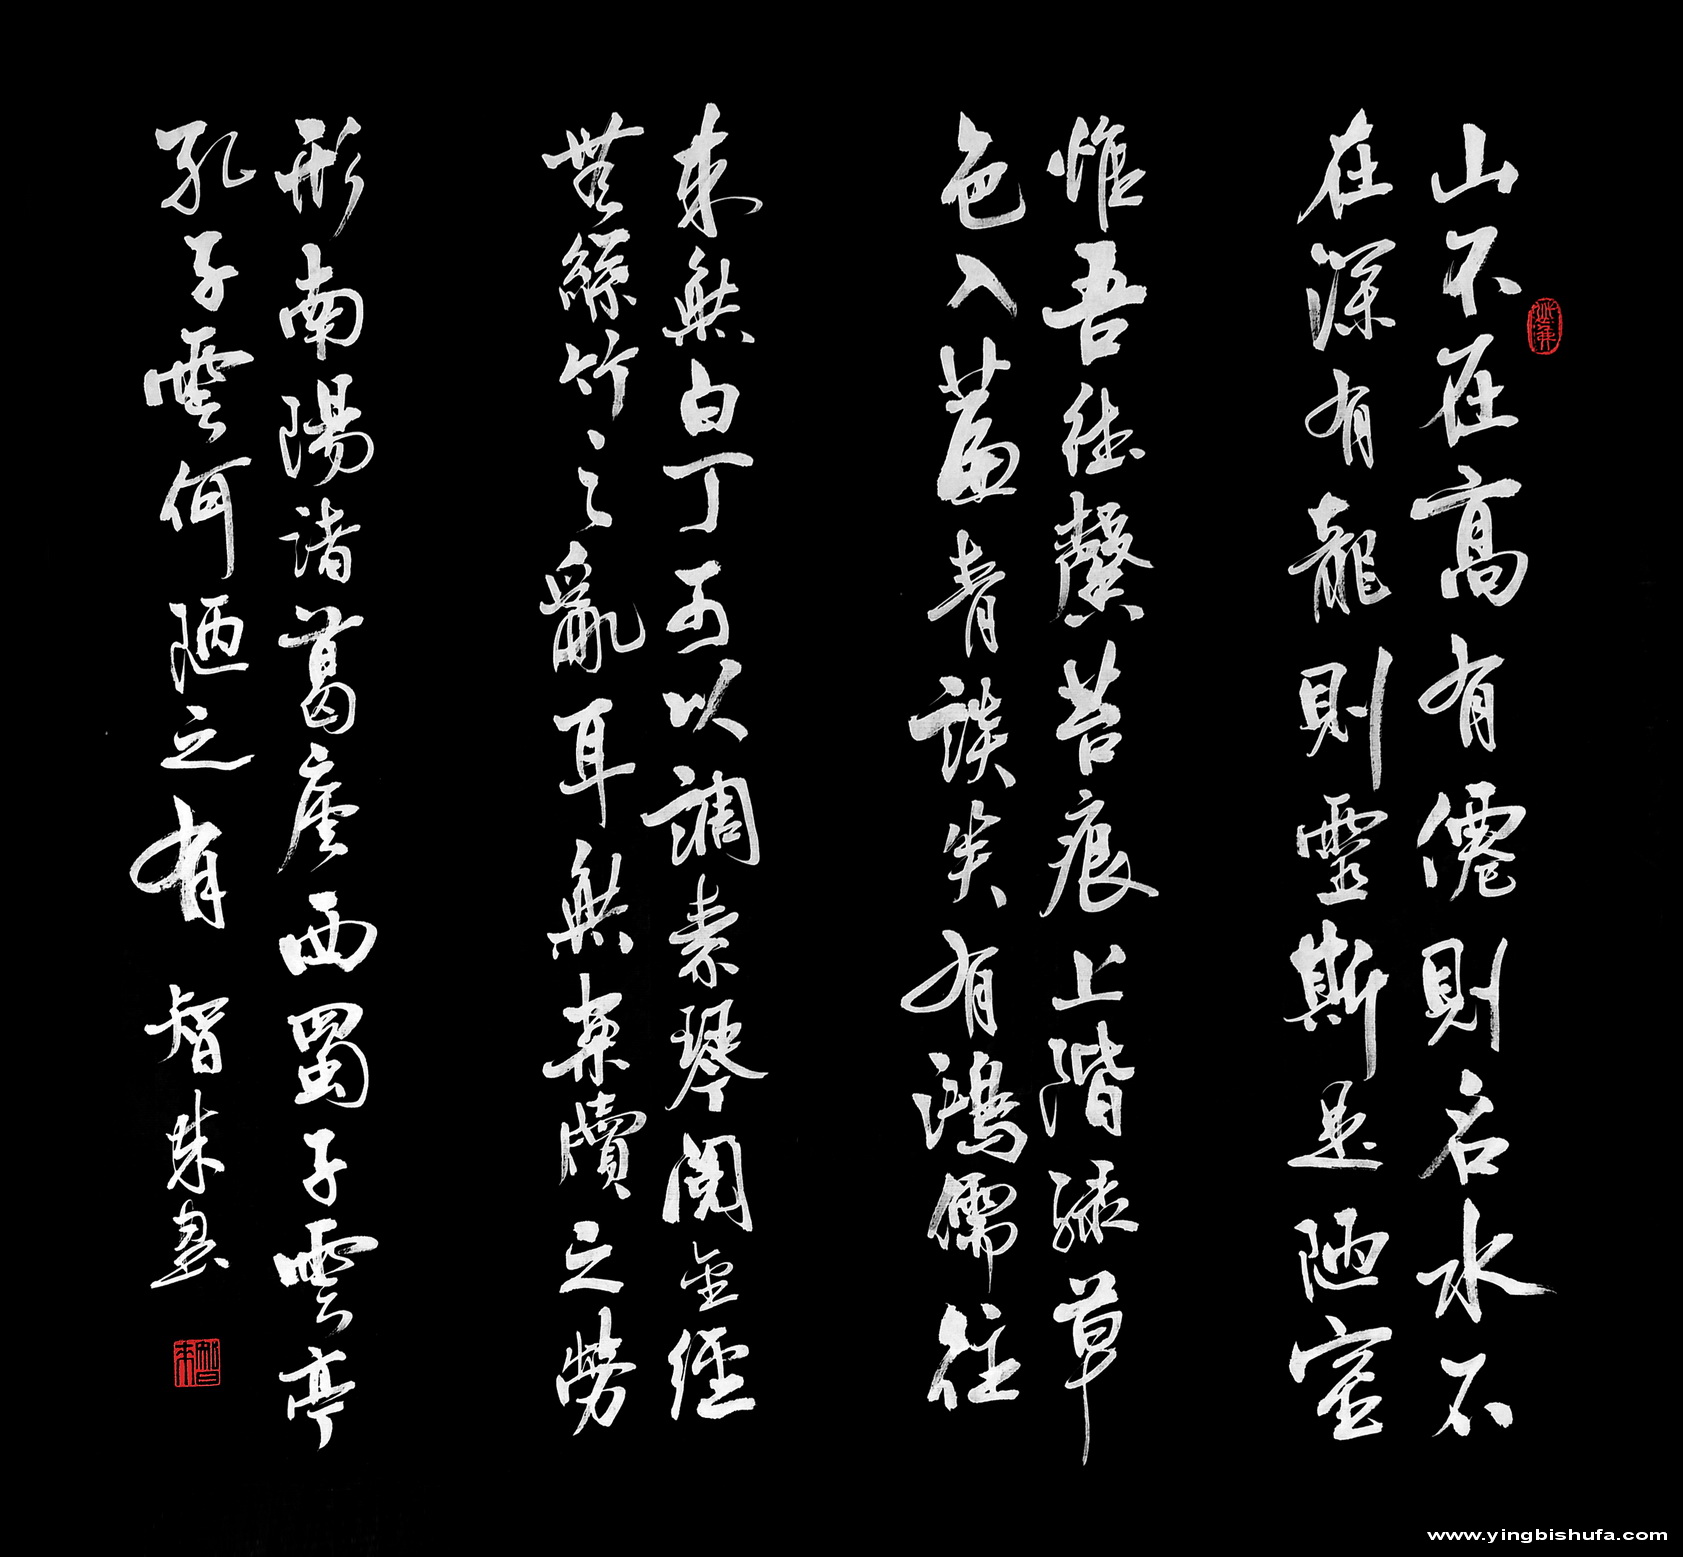 山不在高有僊則名水不
在深有龍則靈斯是陋室
惟吾德馨苔痕上階綠草
色入簾青談笑有鴻儒往
来無白丁可以調素琴閱金經
無絲竹之亂耳無案牘之勞
形南陽諸葛廬西蜀子雲亭
孔子雲何陋之有 智朱書
www.yingbishufa.com